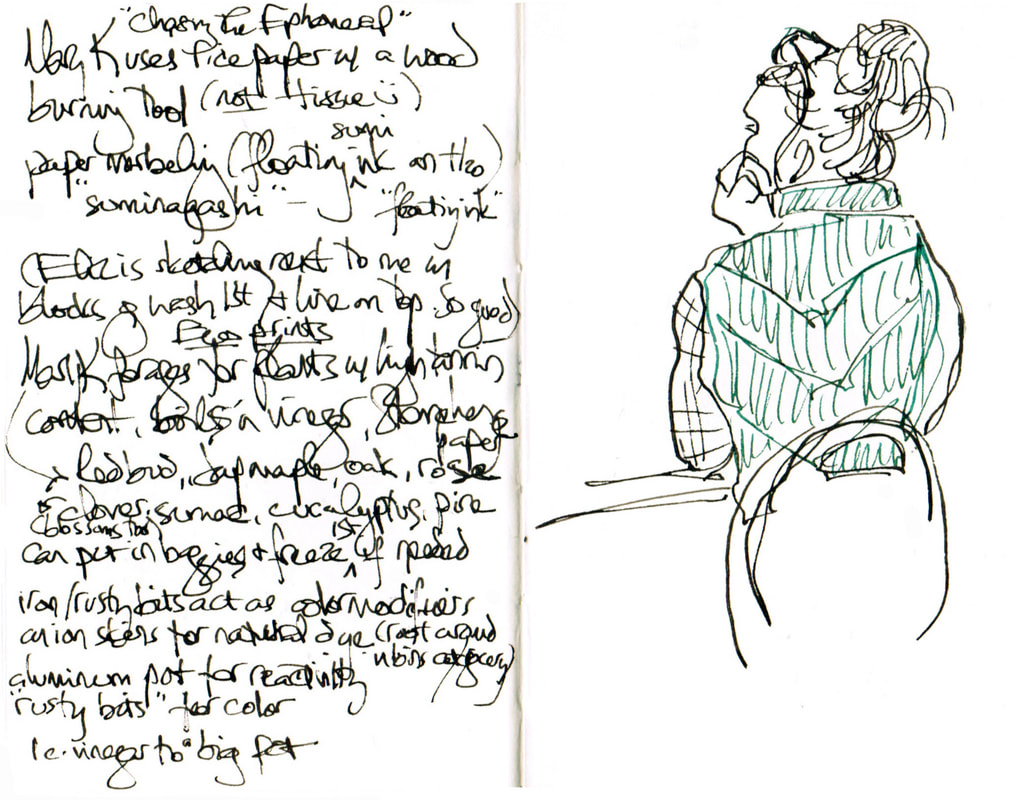 "Chasing the Ephemeral"
Mary K uses rice paper w/ a wood
burning tool (not tissue :))
sumi
paper marbeling (floating ink on H2O)
"suminagashi" - "floating ink"
is sketching next to me in
blocks of wash 1st + line on top. So good)
Eco prints
Mary K forages for plants w/ high tannin
content, boils in vinegar,
paper
Redbud, Jap maple, oak, rose
clover, sumac, eucalyptus, pine
(blossoms too)
1st
can put in baggies + freeze if needed
iron/rusty bits act as color modifiers
onion skins for natural dye (root around
in bins @ grocery)
aluminum pot for reactivity
"rusty bits" for color
1 c. vinegar to big pot